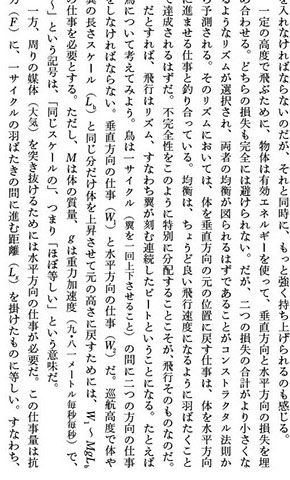 を入れなければならないのだが、それと同時に、もっと強く持ち上げられるのも感じる。
一定の高度で飛ぶために、物体は有効エネルギーを使って、垂直方向と水平方向の損失を埋
め合わせる。どちらの損失も完全には避けられない。だが、二つの損失の合計がより小さくな
るようなリズムが選択され、両者の均衡が図られるはずであることがコンストラクタル法則か
ら予測される。そのリズムにおいては、体を垂直方向の元の位置に戻す仕事は、体を水平方向
に進ませる仕事と釣り合っている。均衡は、ちょうど良い飛行速度になるように羽ばたくこと
で達成されるはずだ。不完全性をこのように特別に分配することこそが、飛行そのものなのだ。
だとすれば、飛行はリズム、すなわち翼が刻む連続したビートということになる。たとえば
鳥について考えてみよう。鳥は一サイクル（翼を一回上下させること）の間に二つの方向の仕事
をしなければならない。垂直方向の仕事（W₁）と水平方向の仕事（W₂）だ。巡航高度で体や
翼の長さスケール（Lb）と同じ分だけ体を上昇させて元の高さに戻すためには、W₁〜MgLb
の仕事を必要とする。ただし、Mは体の質量、gは重力加速度（九・八一メートル毎秒毎秒）で、
「〜」という記号は、「同じスケールの」、つまり「ほぼ等しい」という意味だ。
一方、周りの媒体（大気）を突き抜けるためには水平方向の仕事が必要だ。この仕事量は抗
力（F）に、一サイクルの羽ばたきの間に進む距離（Ls）を掛けたものに等しい。すなわち、